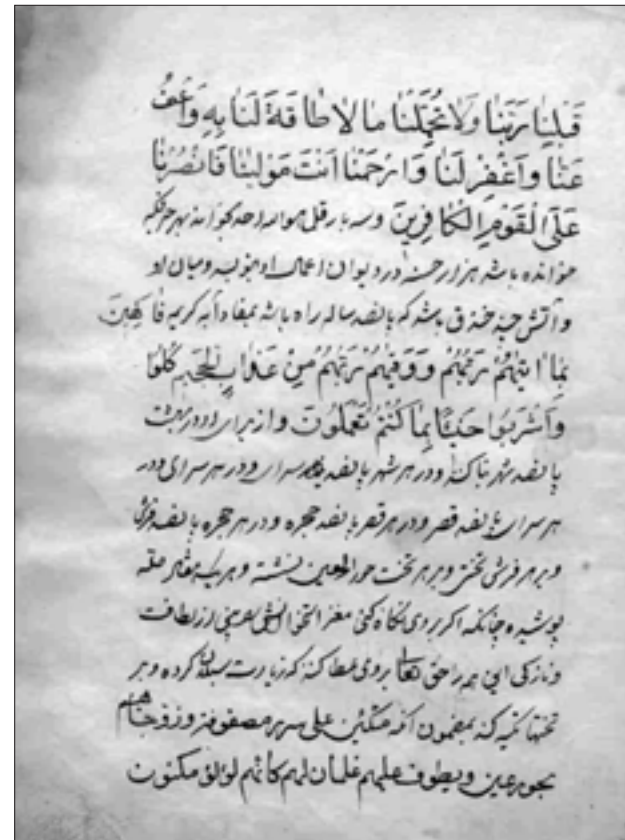 قَبْلِنَا رَبَّنَا وَلَا تُحَمِّلْنَا مَا لَا طَاقَةَ لَنَا بِهِ وَاعْفُ
عَنَّا وَاغْفِرْ لَنَا وَارْحَمْنَا أَنْتَ مَوْلَانَا فَانْصُرْنَا
عَلَى الْقَوْمِ الْكَافِرِينَ وسه بار قل هو الله احد بخواند هر که
خوانده باشد هزار حسنه در دیوان اعمال او بنویسد و میان او
و آتش خندق باشد که پانصد ساله راه باشد بمفاد آیه کریم فَاكِهِينَ
بِمَا آتَيهُمْ رَبُّهُمْ وَوَقَيهُمْ رَبُّهُمْ مِنْ عَذَابِ الْجَحِيمِ كُلُوا
وَاشْرَبُوا هَنِيئًا بِمَا كُنْتُمْ تَعْمَلُونَ و از برای او در بهشت
پانصد شهر بنا کند و در هر شهر پانصد سرای و در هر سرای و در
هر سرای پانصد قصر و در هر قصر پانصد حجره و در هر حجره پانصد فرش
و بر هر فرش تختی و بر هر تخت حور العین نشسته و هر یک حله
پوشیده چنانکه اگر بروی نگاه کنی مغز استخوانش از لطافت
و نازکی این همه را حق تعالی بروی عطا کند که زیارت کرده و بر
تختها تکیه کند بمضمون آنکه متکئین علی سرر مصفوفة وزوجناهم
بحور عین ویطوف علیهم غلمان لهم کانهم لؤلؤ مکنون